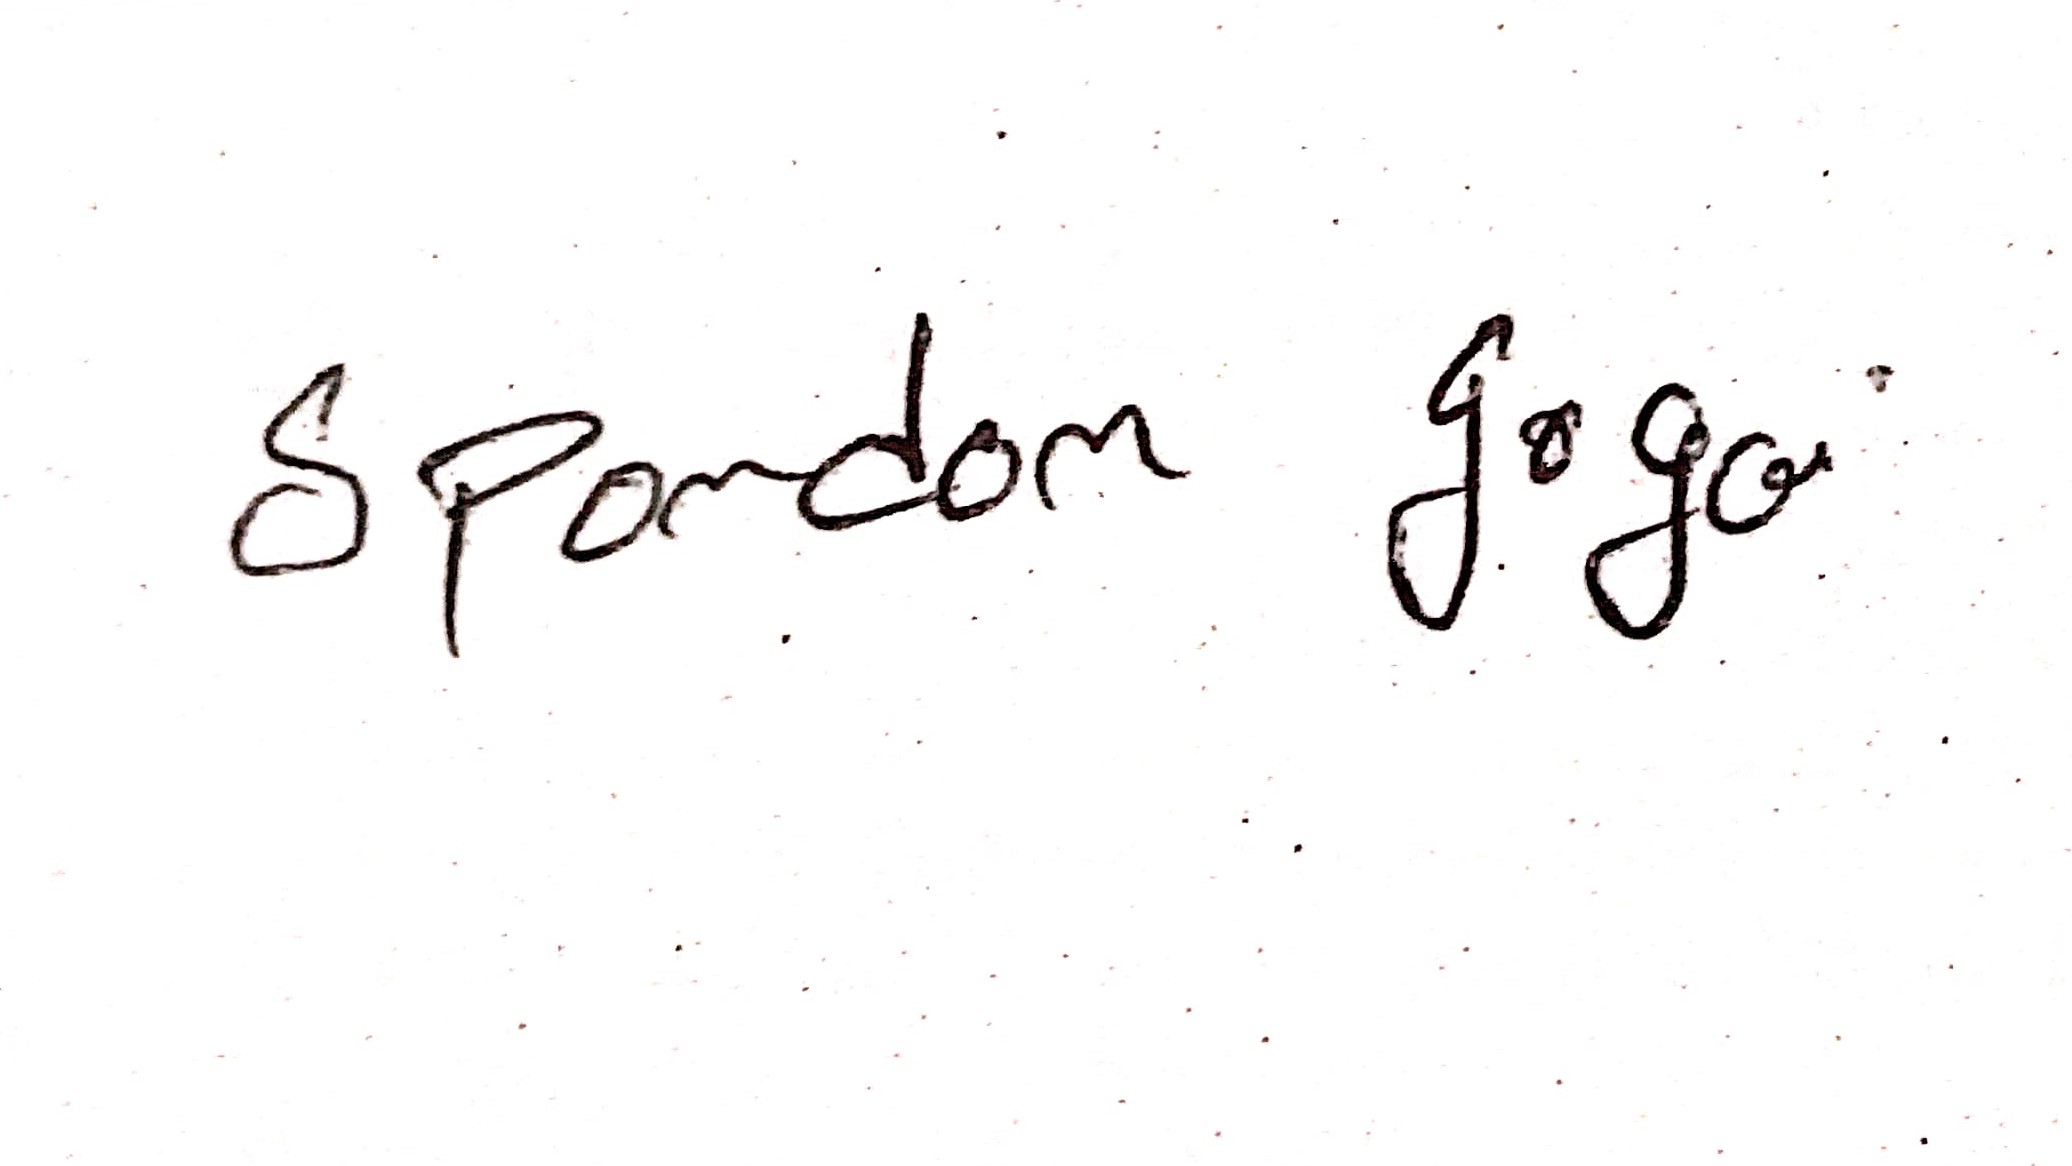 Spondon gogoi